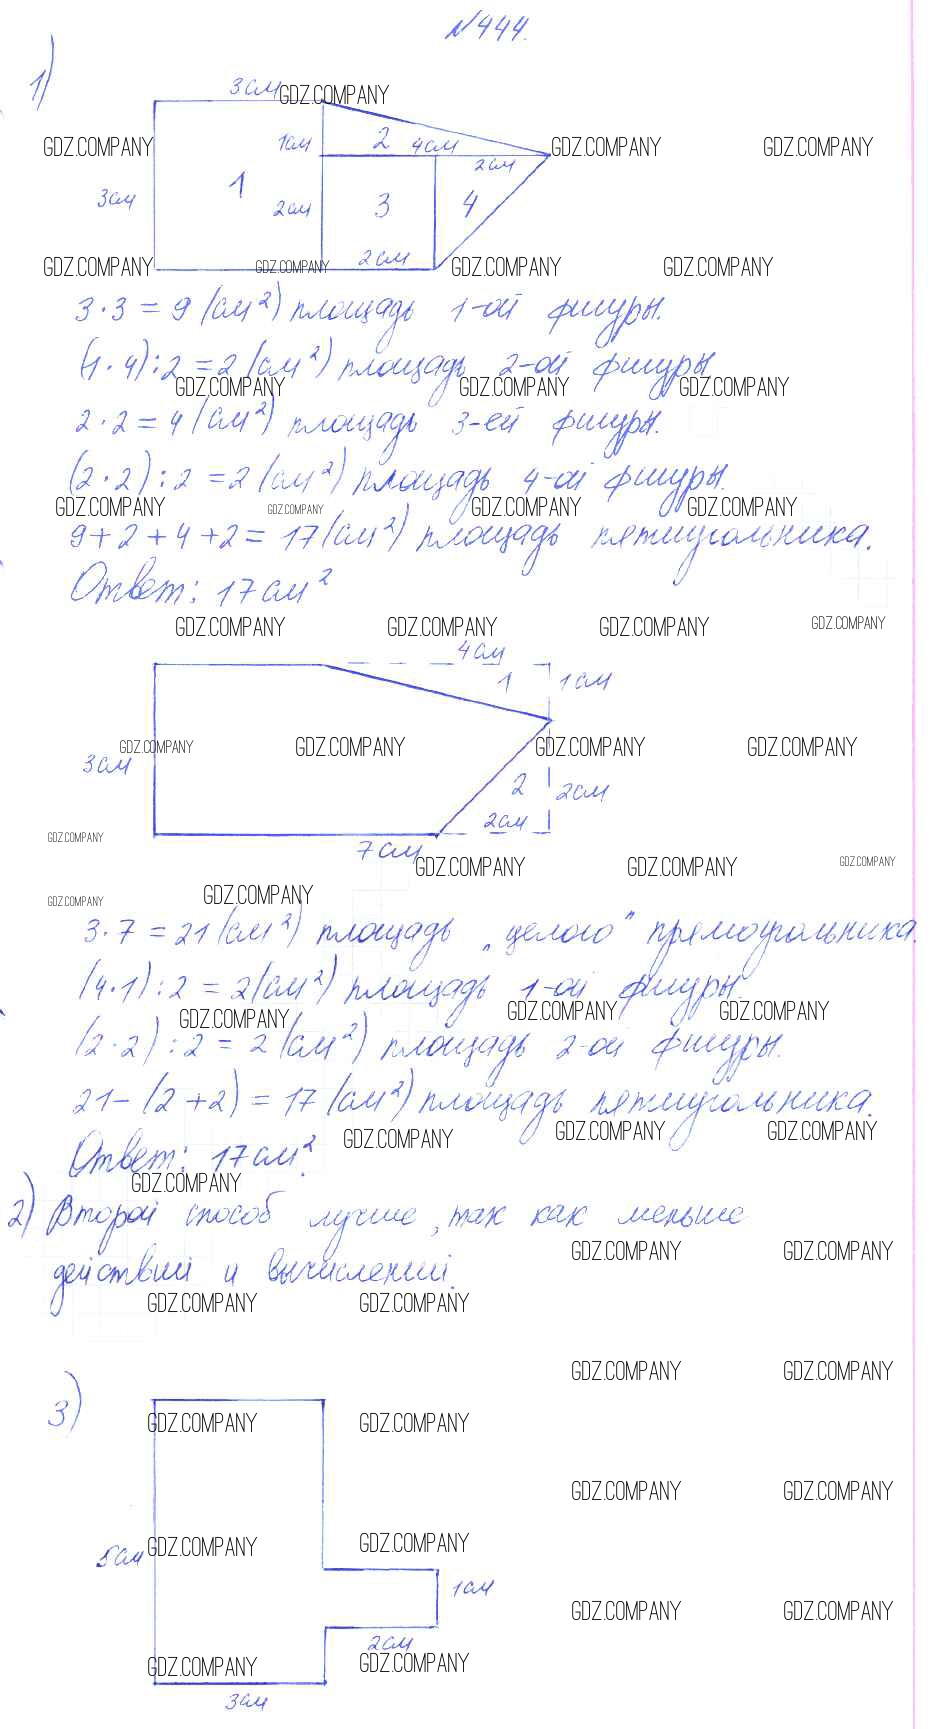 №444.
1)
3см GDZ.COMPANY
1см 2 4см
GDZ.COMPANY GDZ.COMPANY GDZ.COMPANY
2см
3см 1 2см 3 4
2см
GDZ.COMPANY GDZ.COMPANY GDZ.COMPANY GDZ.COMPANY
3·3=9 (см²) площадь 1-ой фигуры.
(1·4):2=2 (см²) площадь 2-ой фигуры
GDZ.COMPANY GDZ.COMPANY GDZ.COMPANY
2·2=4 (см²) площадь 3-ей фигуры.
(2·2):2=2 (см²) площадь 4-ой фигуры.
GDZ.COMPANY GDZ.COMPANY GDZ.COMPANY GDZ.COMPANY
9+2+4+2=17 (см²) площадь пятиугольника.
Ответ: 17см²
GDZ.COMPANY GDZ.COMPANY GDZ.COMPANY GDZ.COMPANY
4см
1 1см
GDZ.COMPANY GDZ.COMPANY GDZ.COMPANY GDZ.COMPANY
3см
2 2см
2см
GDZ.COMPANY
7см
GDZ.COMPANY GDZ.COMPANY GDZ.COMPANY
GDZ.COMPANY GDZ.COMPANY
3·7=21 (см²) площадь „целого" прямоугольника.
(4·1):2=2 (см²) площадь 1-ой фигуры.
GDZ.COMPANY GDZ.COMPANY GDZ.COMPANY
(2·2):2=2 (см²) площадь 2-ой фигуры.
21-(2+2)=17 (см²) площадь пятиугольника.
GDZ.COMPANY GDZ.COMPANY GDZ.COMPANY
Ответ: 17см².
GDZ.COMPANY
2) Второй способ лучше, так как меньше
GDZ.COMPANY GDZ.COMPANY
действий и вычислений.
GDZ.COMPANY GDZ.COMPANY
GDZ.COMPANY GDZ.COMPANY
3)
GDZ.COMPANY GDZ.COMPANY
GDZ.COMPANY GDZ.COMPANY
5см GDZ.COMPANY GDZ.COMPANY
1см
GDZ.COMPANY GDZ.COMPANY
2см
GDZ.COMPANY GDZ.COMPANY
3см